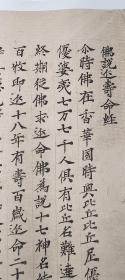 佛說延壽命經
尒時佛在香華園時與比丘比丘尼優
優婆夷七万七千人俱有比丘名難達
終期從佛求延命佛為說十七神名結
百牧即延十八年有壽百歲延命二十